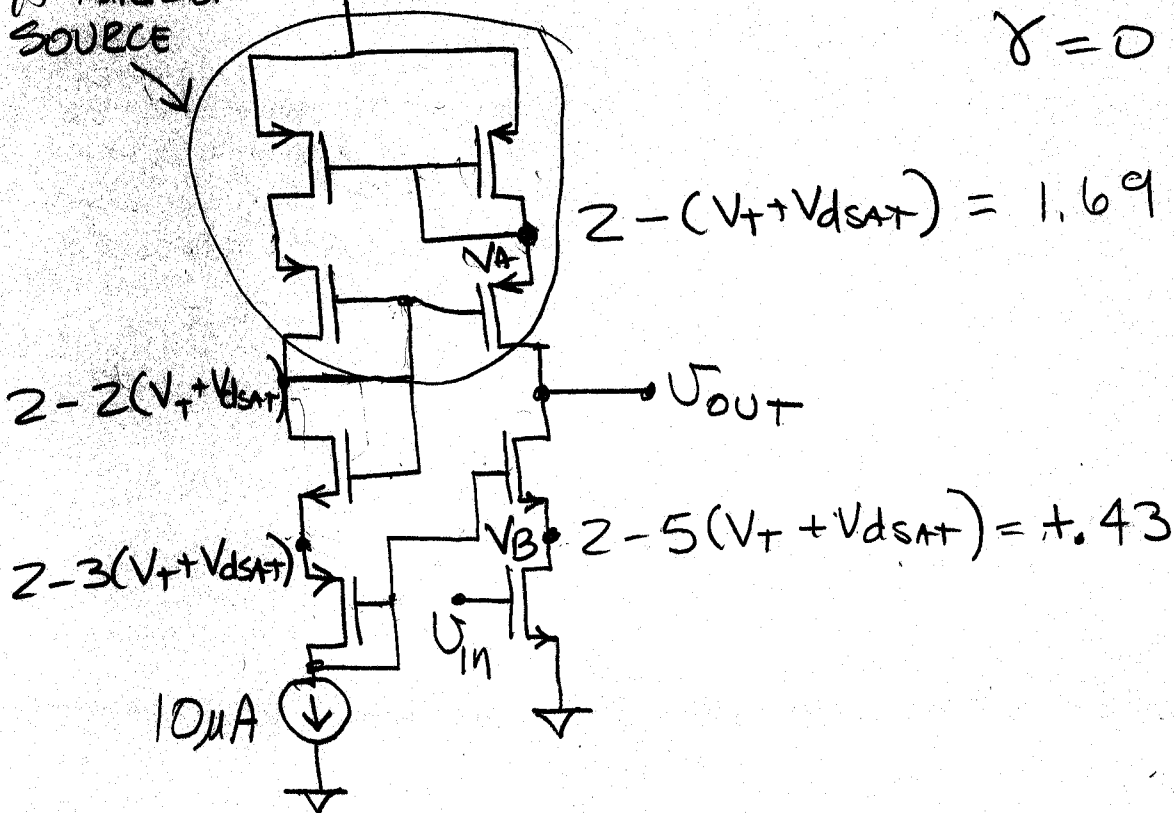 SOURCE
γ = 0
2 - (VT + VdSAT) = 1.69
VA
2 - 2(VT + VdSAT)
VOUT
VB
2 - 5(VT + VdSAT) = +.43
2 - 3(VT + VdSAT)
Vin
10µA